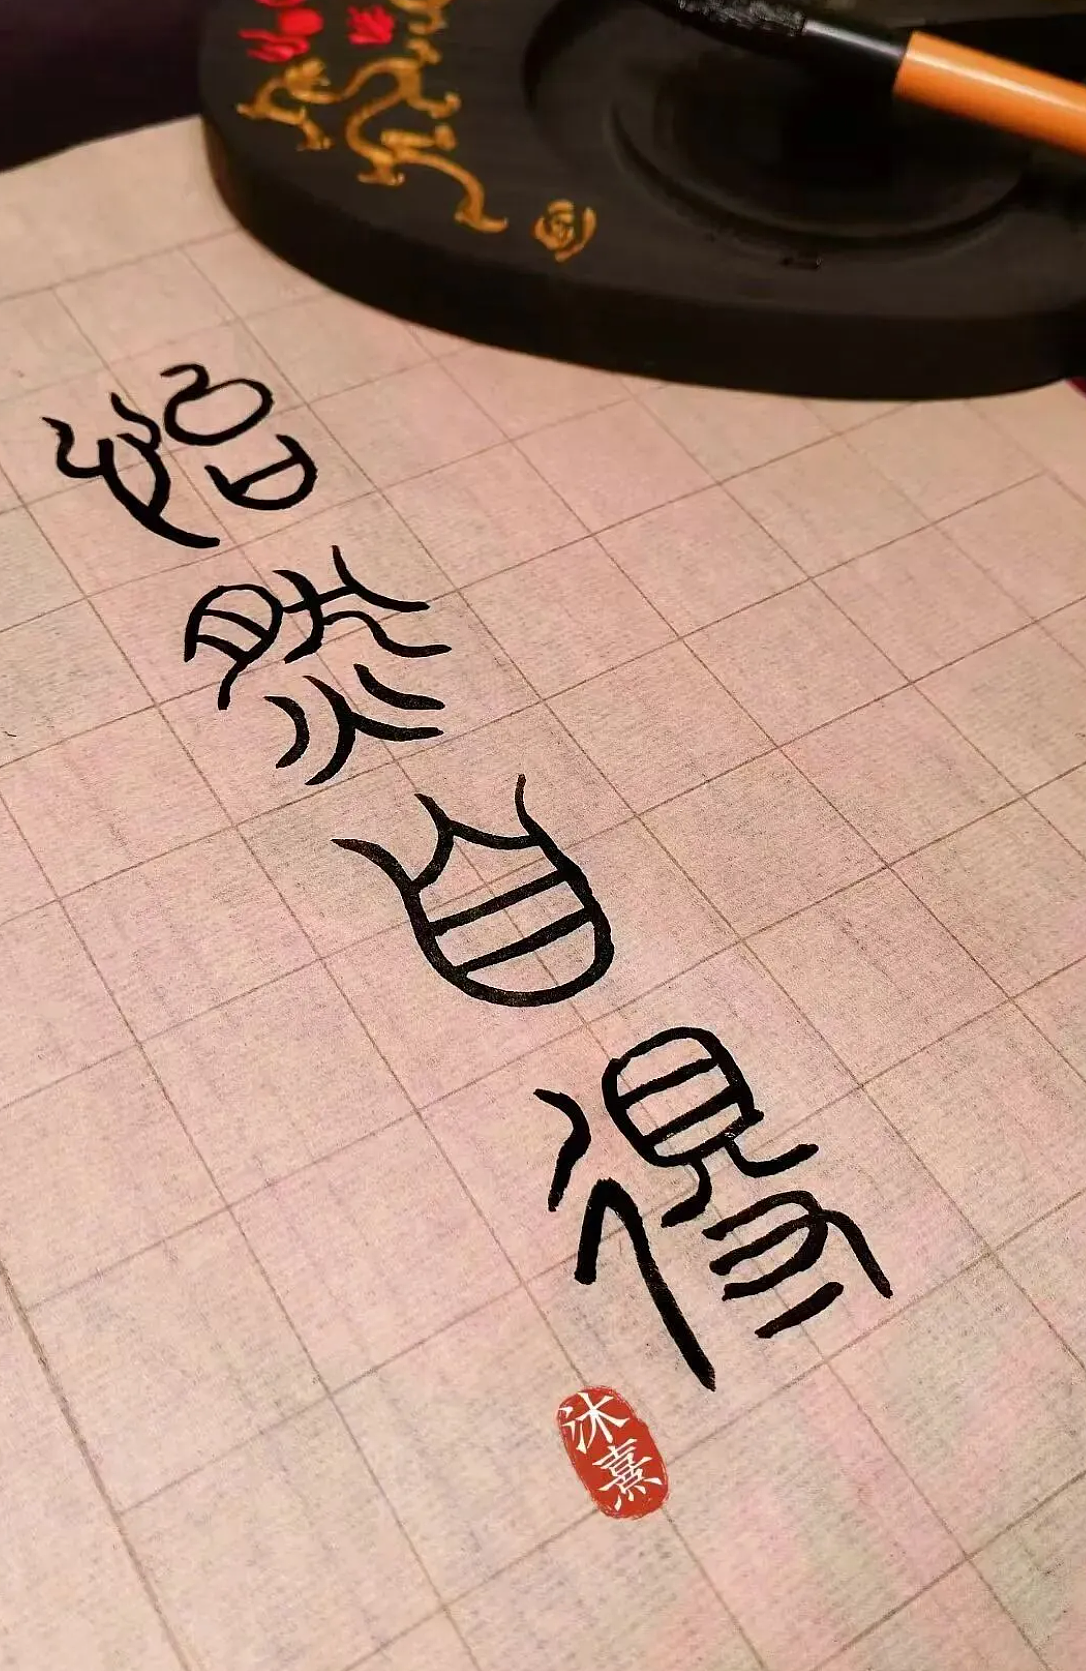 怡然自得
沐熹